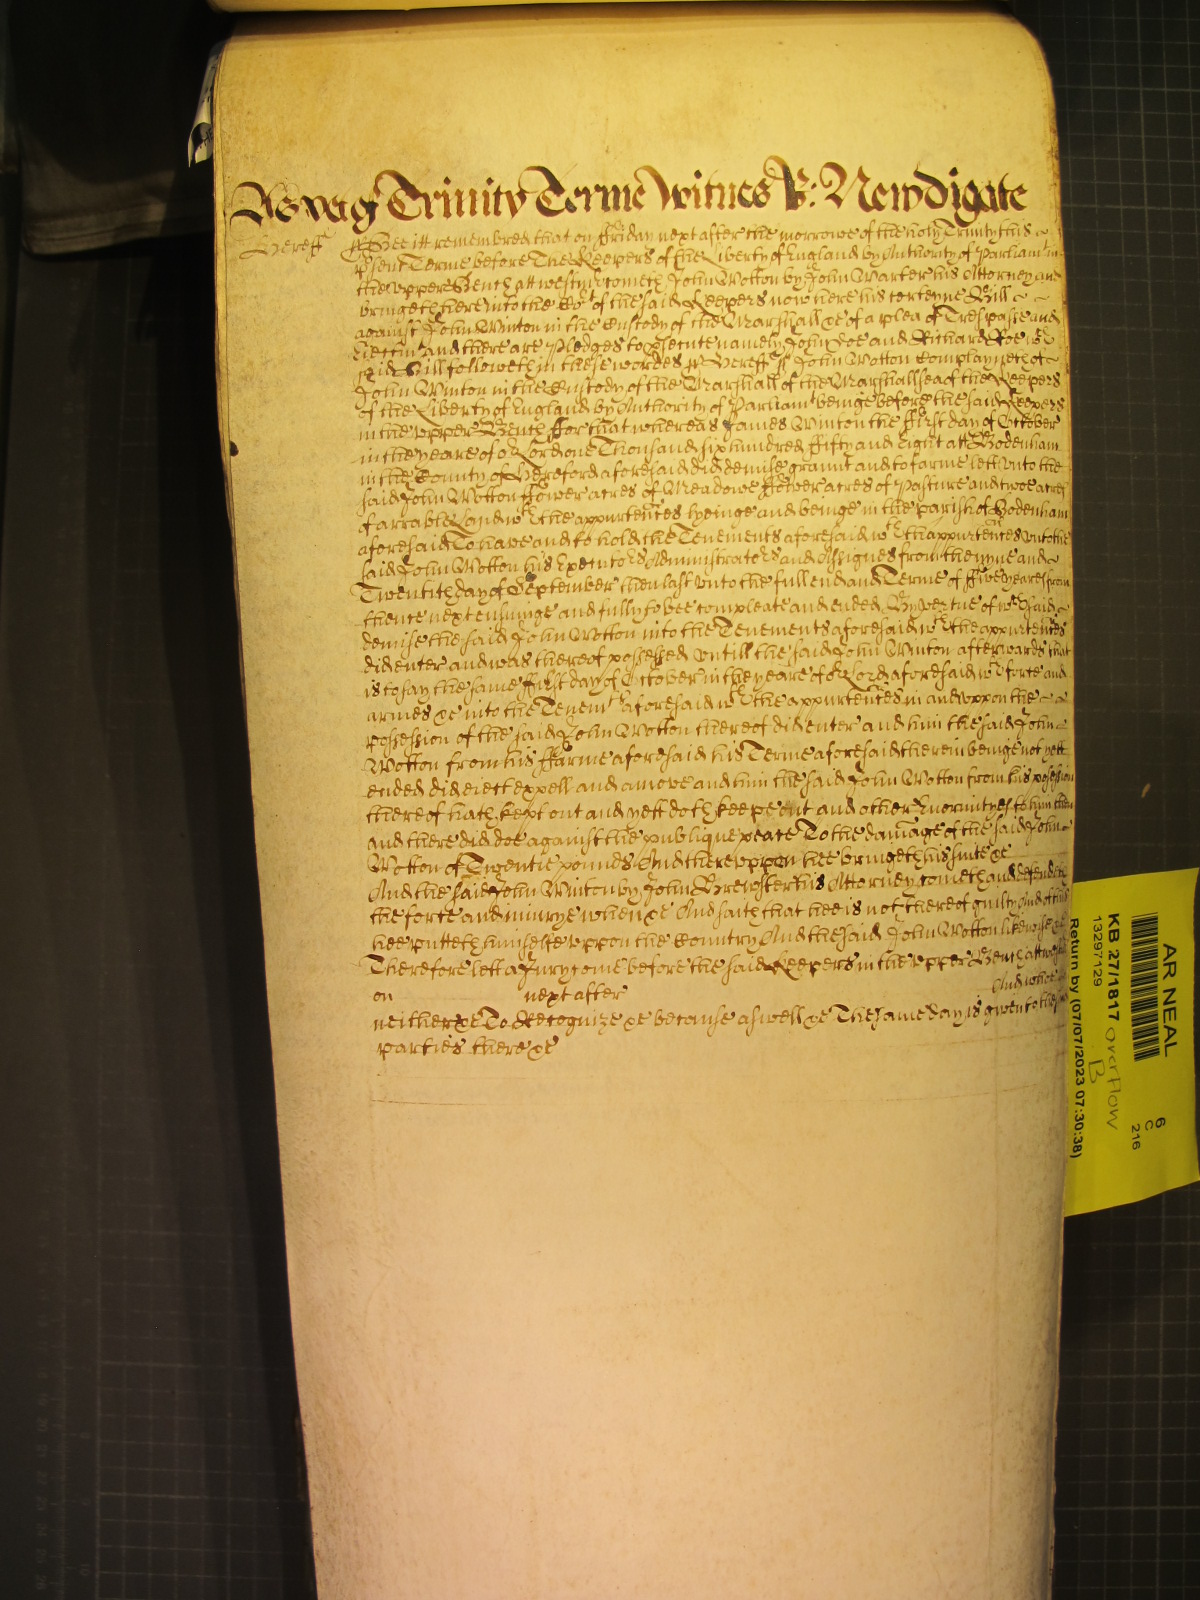 As yet of Trinity Terme Witnes R: Newdigate
Hereff ss Bee itt remembred that on ffriday next after the morrowe of the holy Trinity this
p'sent Terme before The Keepers of the Liberty of England by Authority of Parliam't in
the upper Bench att westm'r cometh John Wotton by John Warter his Attorney and
bringeth here into the Co't of the said Keepers now here his certeyne Bill
against John Winton in the Custody of the Marshall &c of a plea of Trespasse and
Eiectm't and there are Pledges to p'secute namely John Doe and Richard Roe w'ch
said Bill followeth in these wordes ss Hereff ss John Wotton Complayneth of
John Winton in the Custody of the Marshall of the Marshallsea of the Keepers
of the Liberty of England by Authority of Parliam't beinge before the said Keepers
in the upper Bench ffor that whereas James Winton the ffirst day of October
in the yeare of o'r Lord one Thousand six hundred ffifty and Eight att Bodenham
in the County of Hereford aforesaid did demise graunt and to farme lett unto the
said John Wotton ffower acres of Meadowe ffower acres of Pasture and twoe acres
of arrable Land w'th the appurten'ces lyeinge and beinge in the parish of Bodenham
aforesaid To have and to hold the Tenements aforesaid w'th th appurten'ces unto the
said John Wotton his Executo'rs Administrato'rs and Assignes from the nyne and
Twentith day of September then last unto the full end and Terme of ffive yeares from
thence next ensuinge and fully to bee compleate and ended By vertue of w'ch said
demise the said John Wotton into the Tenements aforesaid w'th the appurten'ces
did enter and was thereof possessed untill the said John Winton afterwards that
is to say the same ffirst day of October in the yeare of o'r Lord aforesaid w'th force and
armes &c into the Tenem'ts aforesaid w'th the appurten'ces in and uppon the
possession of the said John Wotton thereof did enter and him the said John
Wotton from his ffarme aforesaid his Terme aforesaid therein beinge not yett
ended did eiect expell and amove and him the said John Wotton from his possession
thereof hath kept out and yett doth keepe out and other Enormityes to him then
and there did doe against the publique peace To the damage of the said John
Wotton of Twentie pounds And thereuppon hee bringeth his suite &c
And the said John Winton by John Brewster his Attorney cometh and defendeth
the force and iniurye when &c And saith that hee is not thereof guilty And of this
hee putteth himselfe uppon the Country And the said John Wotton likewise &c
Therefore lett a Jury come before the said Keepers in the upper Bench att westm'r
on next after And whoe
neither &c To Recognize &c because aswell &c The same day is given to the
parties there &c
AR NEAL
6
C
216
KB 27/1817 overflow
B
13297129
Return by (07/07/2023 07:30:38)